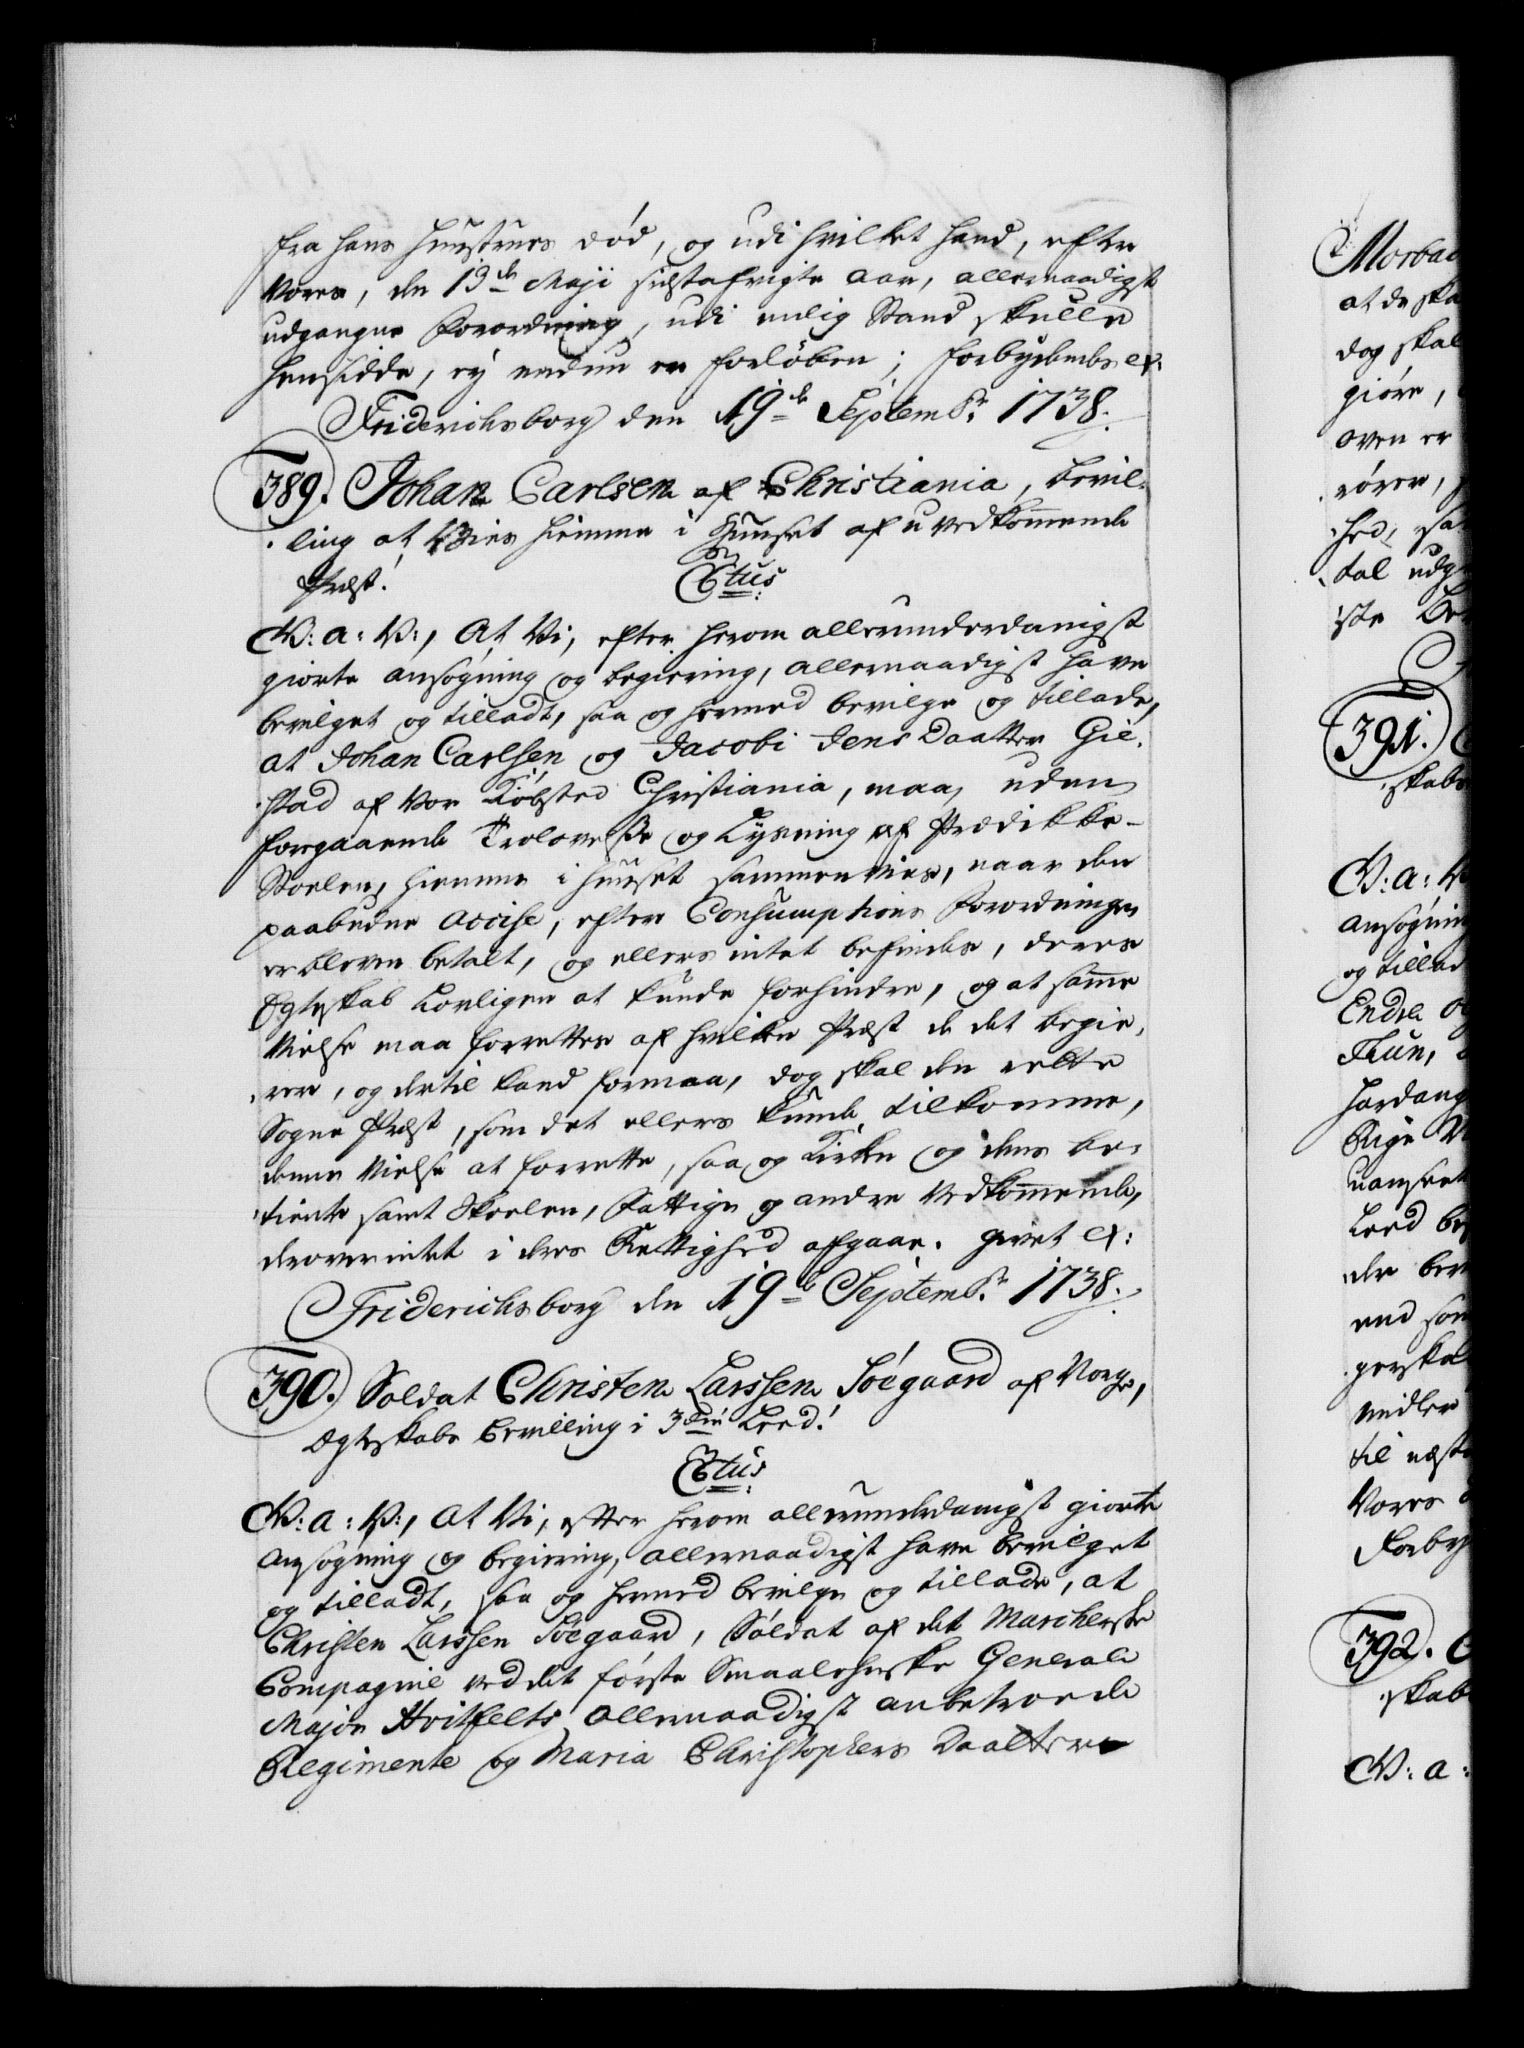 fra hans Hustrues død, og udi hvilket hand, efter
Vores, den 19de Maji sidstafvigte Aar, allernaadigst
udgangne Forordning, udi enlig Stand skulle
hensidde, ej endnu er forløben; forbydende etc.
Friderichsborg den 19de Septembr. 1738.
389. Johan Carlsen af Christiania, bevil-
ling at Vies hiemme i Huuset af uvedkommende
Præst.
Ctus
V: a: V:, At Vi, efter herom allerunderdanigst
giorte ansøgning og begiering, allernaadigst have
bevilget og tilladt, saa og hermed bevilge og tillade,
at Johan Carlsen og Jacobi Jens Daatter Gie-
stad af Vor Kiøbsted Christiania, maa, uden
foregaaende Trolovelse og Lysning af Prædikke-
Stoelen, hiemme i huuset sammenvies, naar den
paabudne Accise, efter Consumptions Forordningen
er bleven betalt, og ellers intet befindes, deres
Egteskab lovligen at kunde forhindre, og at samme
Vielse maa forrettes af hvilken Præst de det begie-
rer, og dertil kand formaa, dog skal den rette
Sogne Præst, som det ellers kunde tilkomme,
denne Vielse at forrette, saa og Kirken og dens be-
tiente samt Skoelen, Fattige og andre Vedkommende,
derover intet i deres Rettighed afgaae. Givet etc:
Friderichsborg den 19de Septembr. 1738.
390. Soldat Christen Larssen Søegaard af Norge,
Ægteskabs Bevilling i 3die Leed.
Ctus
V: a: V:, At Vi, efter herom allerunderdanigst giorte
Ansøgning og begiering, allernaadigst have bevilget
og tilladt, saa og hermed bevilge og tillade, at
Christen Larssen Søegaard, Soldat af det Marcherske
Compagnie ved det første Smaalehnske General
Major Hvitfelts allernaadigst anbetroede
Regimente og Maria Christophers Daatter
Morbad
at de ska
dog skal
giøre,
oven er
røre,
hed, sa
tal udg
iste
391.
skabs
V: a: V
Ansøgning
og tillad
Endre og
Thun,
Hardang
Rige
uanseet
Leed be
de bere
end som
gerskab
midler
til næst
Vores
Forby
392. C
skab
V: a: